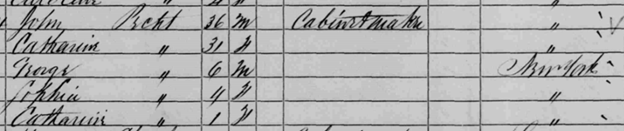 John Bekt 36 M Cabinetmaker "
Catharine " 31 F "
George " 6 M New York
Sophia " 4 F "
Catharine " 1 F "